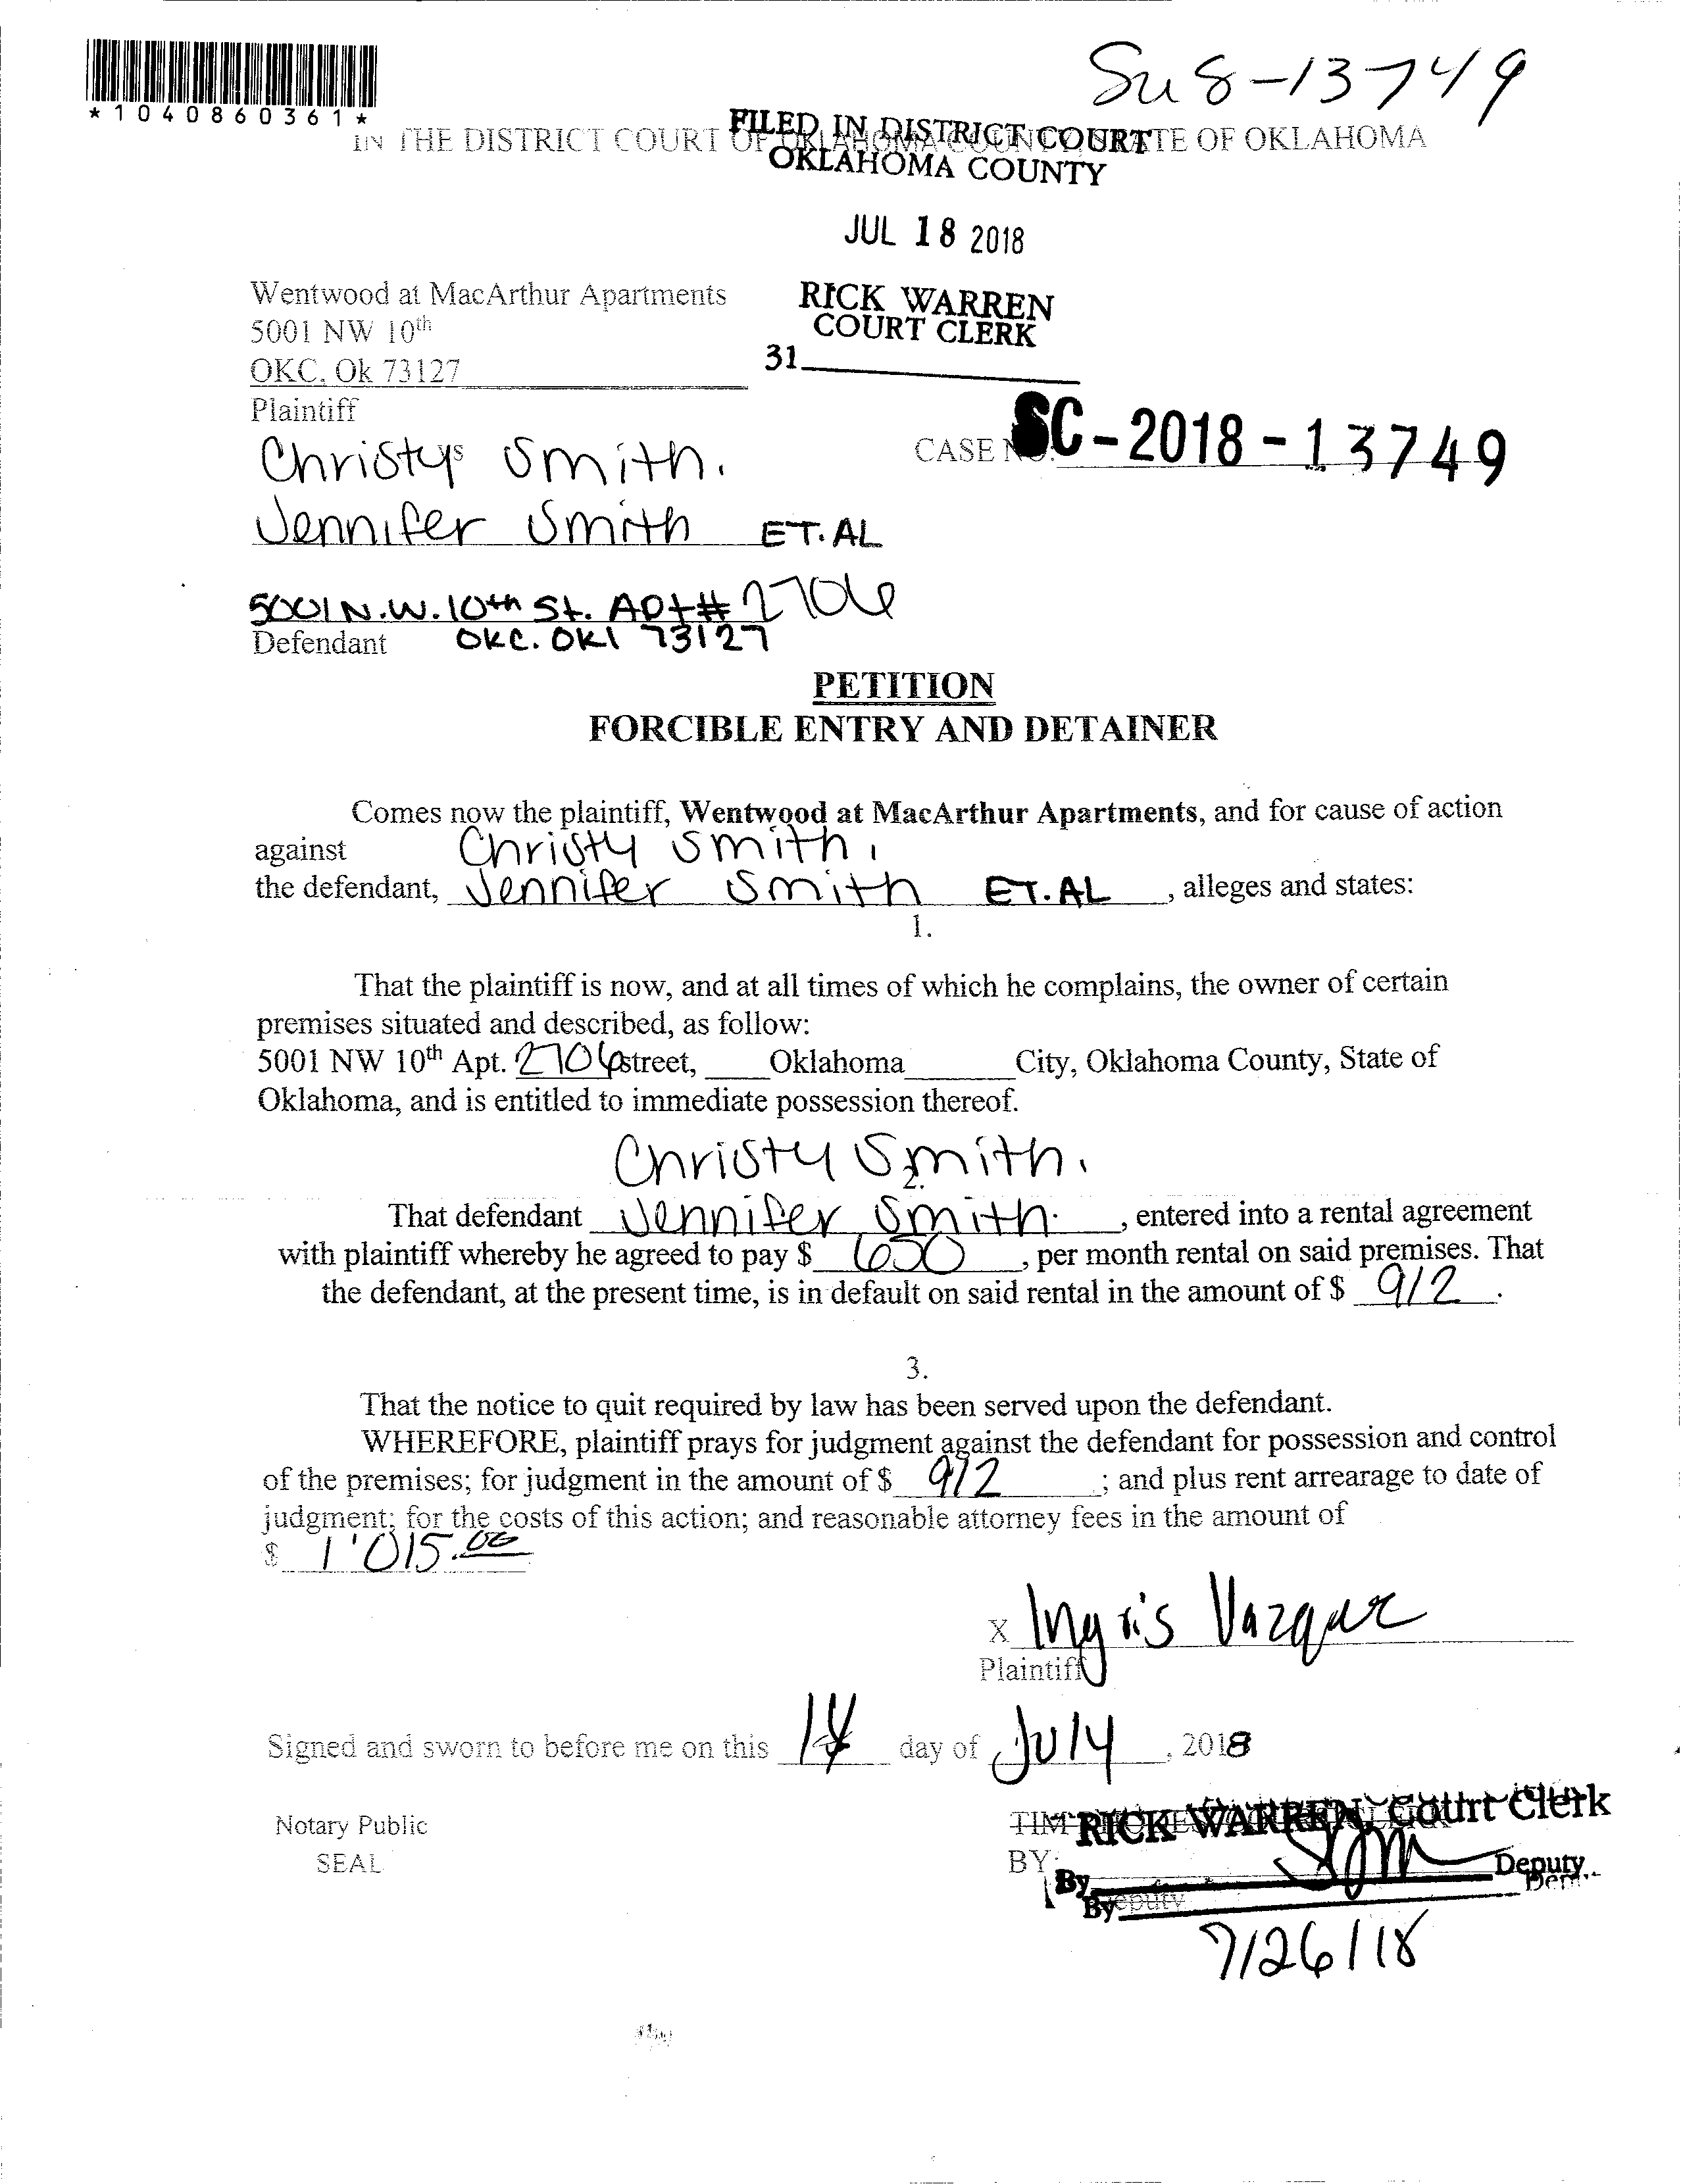 Su 8-13749
*1040860361*
IN THE DISTRICT COURT OF OKLAHOMA COUNTY STATE OF OKLAHOMA
FILED IN DISTRICT COURT
OKLAHOMA COUNTY
JUL 18 2018
Wentwood at MacArthur Apartments
5001 NW 10th
OKC, Ok 73127
Plaintiff
RICK WARREN
COURT CLERK
31
CASE NO. SC-2018-13749
Christy Smith.
Jennifer Smith ET.AL
5001 N.W. 10th St. Apt# 2706
Defendant OKC. OKl 73127
PETITION
FORCIBLE ENTRY AND DETAINER
Comes now the plaintiff, Wentwood at MacArthur Apartments, and for cause of action
against Christy Smith,
the defendant, Jennifer Smith ET.AL, alleges and states:
1.
That the plaintiff is now, and at all times of which he complains, the owner of certain
premises situated and described, as follow:
5001 NW 10th Apt. 2706 street, Oklahoma City, Oklahoma County, State of
Oklahoma, and is entitled to immediate possession thereof.
Christy Smith,
2.
That defendant Jennifer Smith., entered into a rental agreement
with plaintiff whereby he agreed to pay $ 650, per month rental on said premises. That
the defendant, at the present time, is in default on said rental in the amount of $ 912.
3.
That the notice to quit required by law has been served upon the defendant.
WHEREFORE, plaintiff prays for judgment against the defendant for possession and control
of the premises; for judgment in the amount of $ 912; and plus rent arrearage to date of
judgment; for the costs of this action; and reasonable attorney fees in the amount of
$ 1'015.00
X Ingris Vazquez
Plaintiff
Signed and sworn to before me on this day of July, 2018
Notary Public
SEAL
RICK WARREN, Court Clerk
BY:
By Deputy
By Deputy
7/26/18